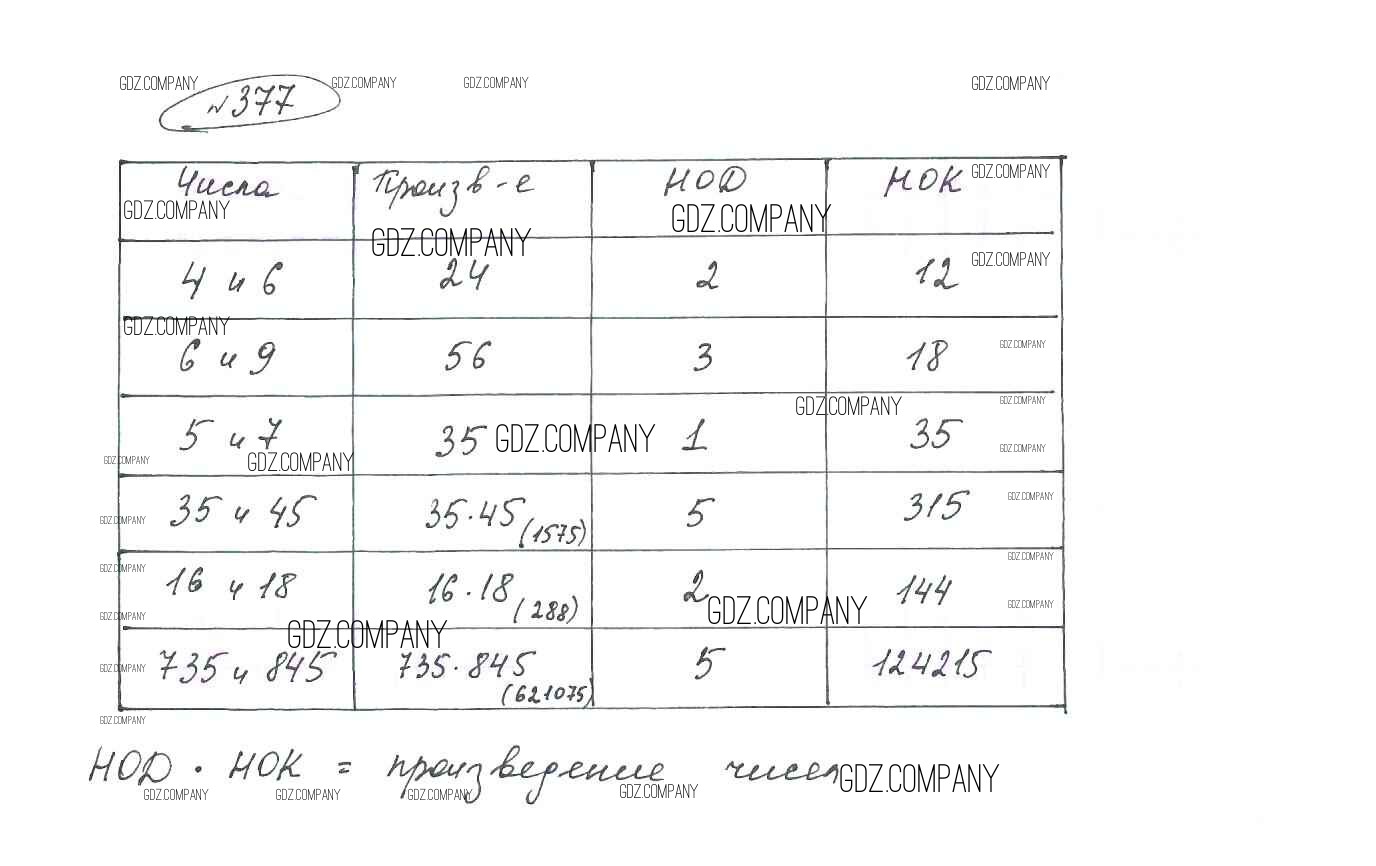 GDZ.COMPANY GDZ.COMPANY GDZ.COMPANY GDZ.COMPANY
№377
Числа Произв-е НОД НОК GDZ.COMPANY
GDZ.COMPANY GDZ.COMPANY
GDZ.COMPANY
4 и 6 24 2 12 GDZ.COMPANY
GDZ.COMPANY
6 и 9 56 3 18 GDZ.COMPANY
GDZ.COMPANY GDZ.COMPANY
5 и 7 35 GDZ.COMPANY 1 35 GDZ.COMPANY
GDZ.COMPANY GDZ.COMPANY
35 и 45 35·45 (1575) 5 315 GDZ.COMPANY
GDZ.COMPANY
GDZ.COMPANY GDZ.COMPANY
16 и 18 16·18 (288) 2 144 GDZ.COMPANY
GDZ.COMPANY GDZ.COMPANY
GDZ.COMPANY
735 и 845 735·845 (621075) 5 124215
GDZ.COMPANY
GDZ.COMPANY
НОД · НОК = произведение чисел GDZ.COMPANY
GDZ.COMPANY GDZ.COMPANY GDZ.COMPANY GDZ.COMPANY